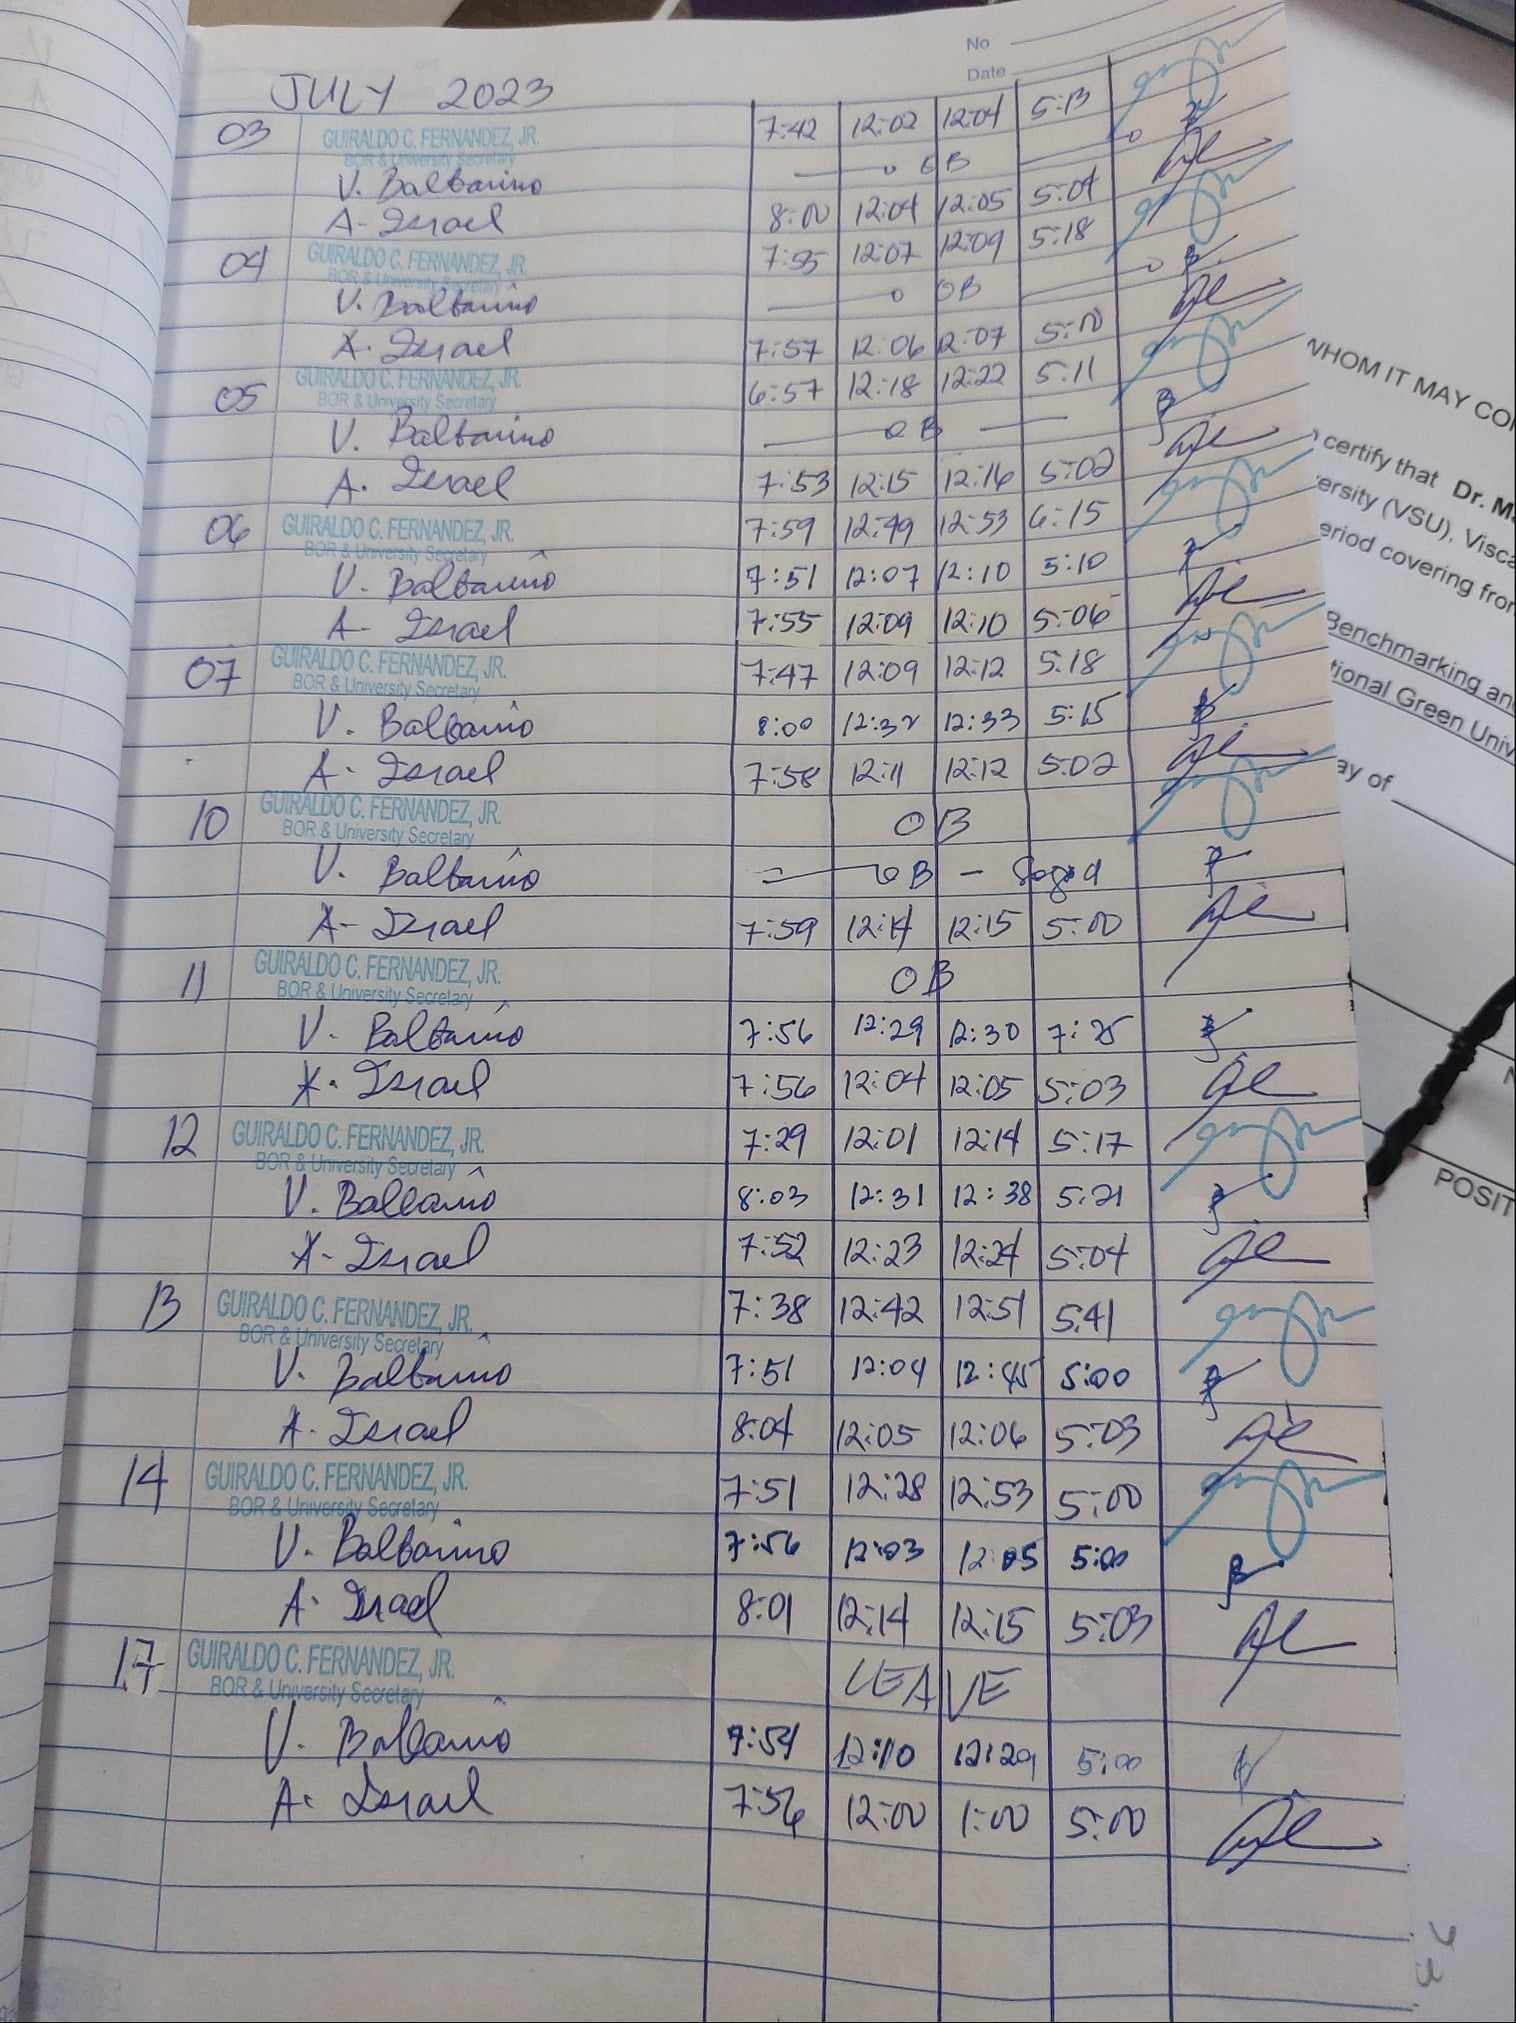 No
Date
JULY 2023
03 GUIRALDO C. FERNANDEZ, JR. 7:42 12:02 12:04 5:13
BOR & University Secretary
V. Balbarino OB
A. Israel 8:00 12:04 12:05 5:04
04 GUIRALDO C. FERNANDEZ, JR. 7:55 12:07 12:09 5:18
BOR & University Secretary
V. Balbarino OB
A. Israel 7:57 12:06 12:07 5:00
05 GUIRALDO C. FERNANDEZ, JR. 6:57 12:18 12:22 5:11
BOR & University Secretary
V. Balbarino OB
A. Israel 7:53 12:15 12:16 5:02
06 GUIRALDO C. FERNANDEZ, JR. 7:59 12:49 12:53 6:15
BOR & University Secretary
V. Balbarino 7:51 12:07 12:10 5:10
A. Israel 7:55 12:09 12:10 5:06
07 GUIRALDO C. FERNANDEZ, JR. 7:47 12:09 12:12 5:18
BOR & University Secretary
V. Balbarino 8:00 12:32 12:33 5:15
A. Israel 7:58 12:11 12:12 5:02
10 GUIRALDO C. FERNANDEZ, JR. OB
BOR & University Secretary
V. Balbarino OB -
A. Israel 7:59 12:14 12:15 5:00
11 GUIRALDO C. FERNANDEZ, JR. OB
BOR & University Secretary
V. Balbarino 7:56 12:29 12:30 7:25
A. Israel 7:56 12:04 12:05 5:03
12 GUIRALDO C. FERNANDEZ, JR. 7:29 12:01 12:14 5:17
BOR & University Secretary
V. Balbarino 8:03 12:31 12:38 5:21
A. Israel 7:52 12:23 12:24 5:04
13 GUIRALDO C. FERNANDEZ, JR. 7:38 12:42 12:51 5:41
BOR & University Secretary
V. Balbarino 7:51 12:04 12:45 5:00
A. Israel 8:04 12:05 12:06 5:03
14 GUIRALDO C. FERNANDEZ, JR. 7:51 12:28 12:53 5:00
BOR & University Secretary
V. Balbarino 7:56 12:03 12:05 5:00
A. Israel 8:01 12:14 12:15 5:03
17 GUIRALDO C. FERNANDEZ, JR. LEAVE
BOR & University Secretary
V. Balbarino 7:54 12:10 12:29 5:00
A. Israel 7:56 12:00 1:00 5:00
WHOM IT MAY
certify that Dr.
(VSU),
covering
Benchmarking
Green
of
POSIT